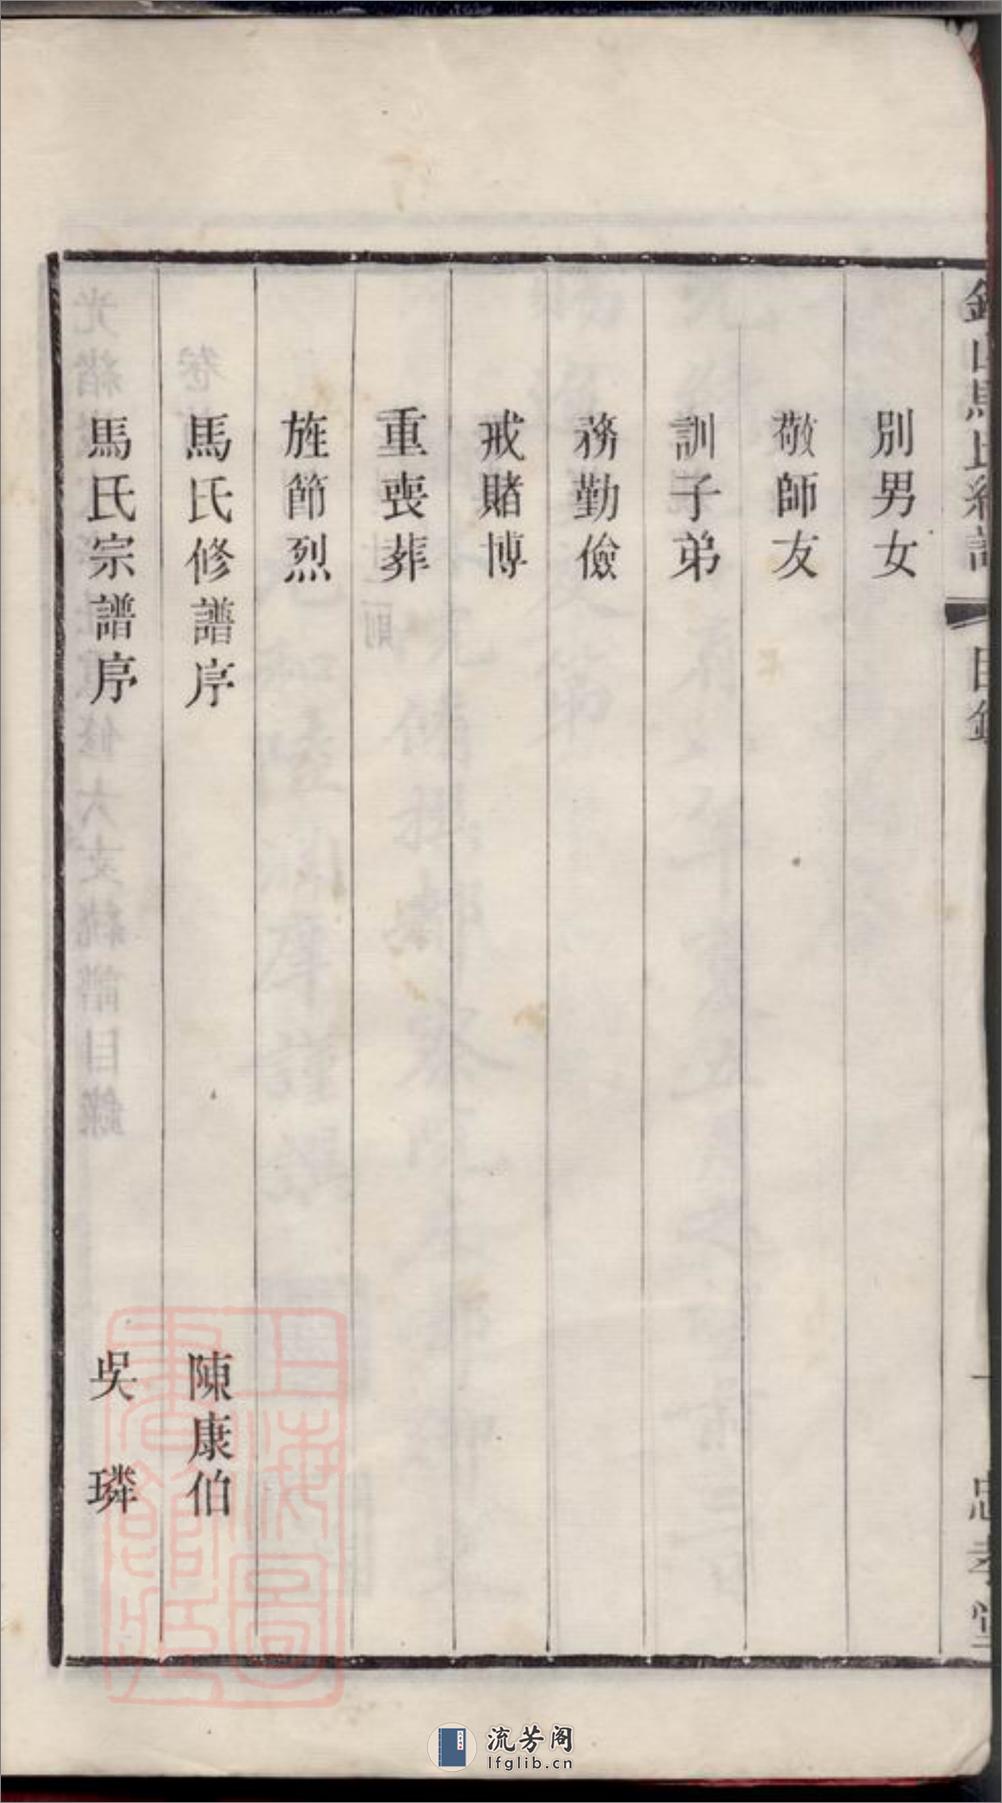 馬氏 目
一 忠孝堂
別男女
敬師友
訓子弟
務勤儉
戒賭博
重喪葬
旌節烈
馬氏修譜序 陳康伯
馬氏宗譜序 吳璘
上海圖書館藏
流芳阁
lfglib.cn